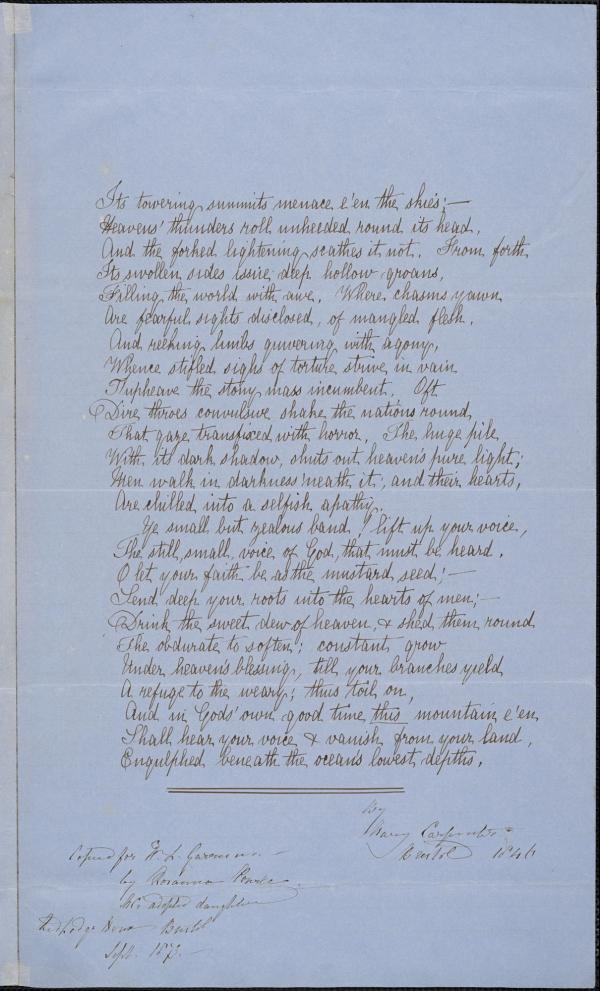 Its towering summits menace e'en the skies;—
Heavens' thunders roll unheeded round its head,
And the forked lightening scathes it not. From forth
Its swollen sides issue deep hollow groans,
Filling the world with awe. Where chasms yawn
Are fearful sights disclosed, of mangled flesh,
And reeking limbs quivering with agony,
Whence stifled sighs of torture strive in vain
T'upheave the stony mass incumbent. Oft
Dire throes convulsive shake the nations round,
That gaze transfixed with horror. The huge pile
With its dark shadow, shuts out heaven's pure light;
Men walk in darkness 'neath it; and their hearts,
Are chilled into a selfish apathy.
Ye small but zealous band! lift up your voice,
The still, small, voice of God, that must be heard.
O let your faith be as the mustard seed;—
Send deep your roots into the hearts of men;—
Drink the sweet dew of heaven, & shed them round
The obdurate to soften; constant grow
Under heaven's blessing, till your branches yield
A refuge to the weary; thus toil on,
And in Gods' own good time this mountain e'en
Shall hear your voice & vanish from your land,
Engulphed beneath the ocean's lowest depths.
By
Mary Carpenter
Bristol 1846
Copied for W. L. Garrison
by Rosanna
her adopted daughter
Red Lodge House Bristol
Sept. 187